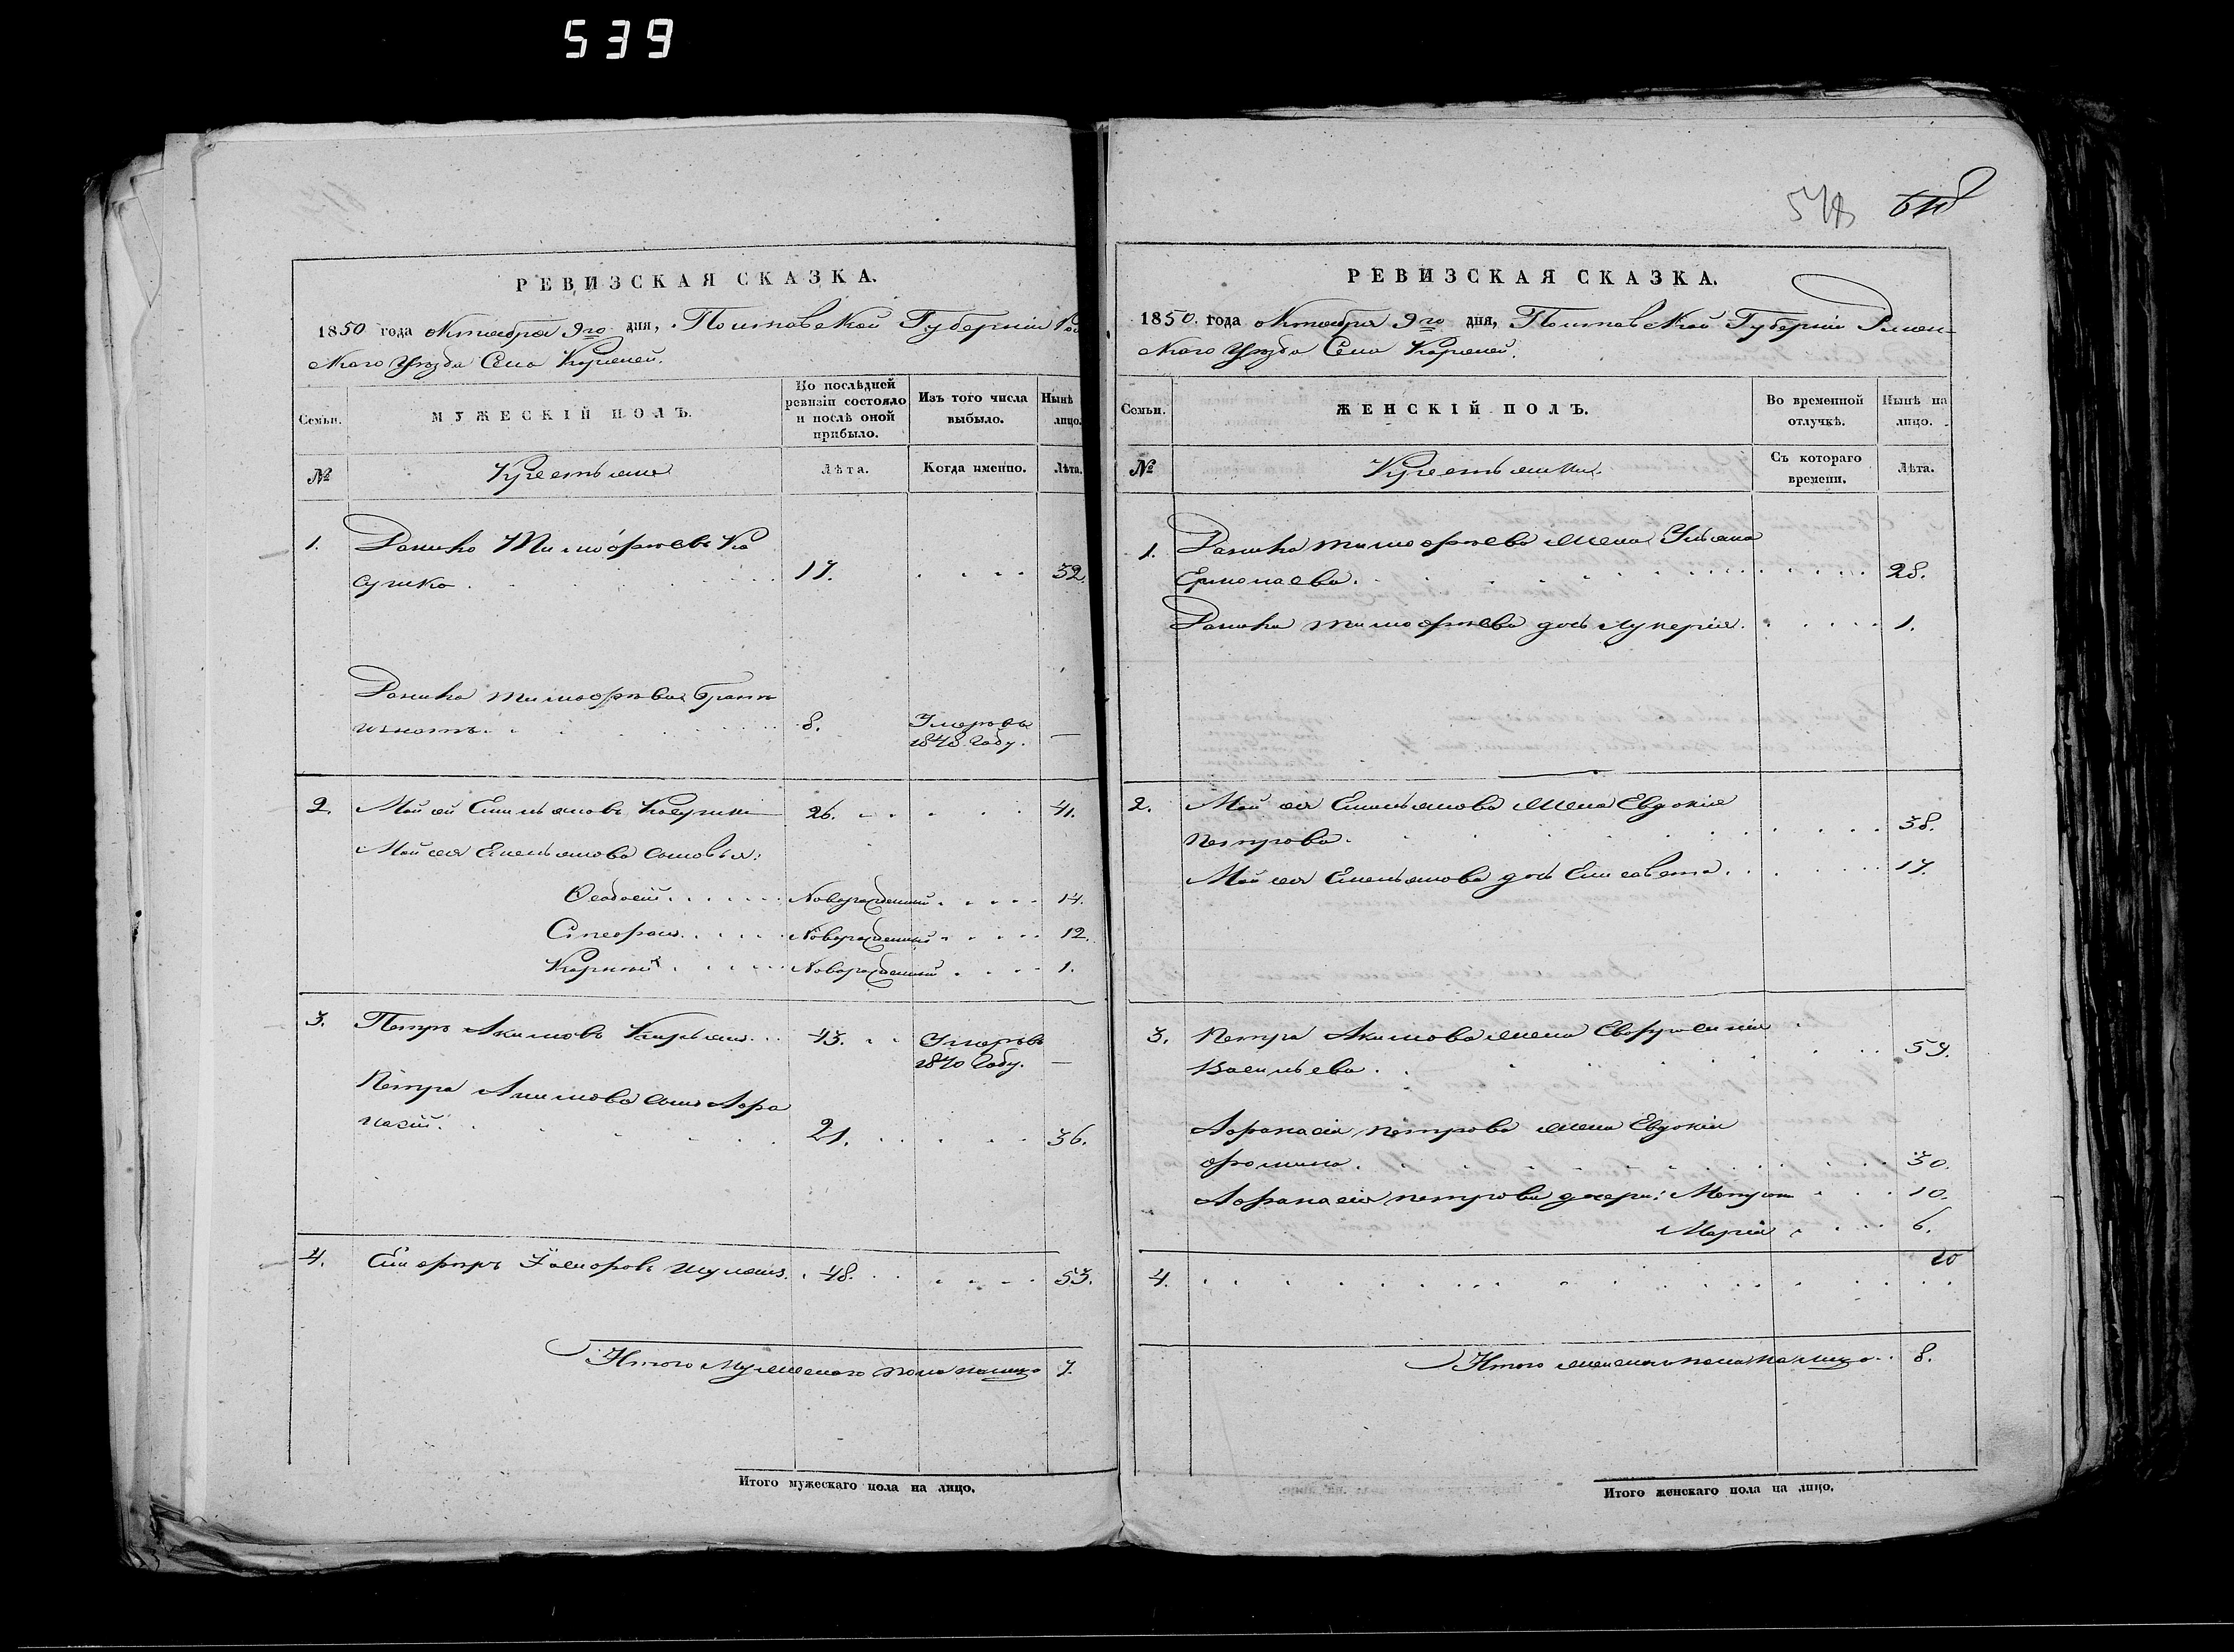 539
РЕВИЗСКАЯ СКАЗКА.
1850 года Октября 9го дня, Полтавской Губерніи
Уѣзда Села
Семьи.
МУЖЕСКІЙ ПОЛЪ.
По послѣдней ревизіи состояло и послѣ оной прибыло.
Изъ того числа выбыло.
Нынѣ
лицо.
№
Крестьяне
Лѣта.
Когда именно.
Лѣта.
1. Данило Тимофѣевъ Ко
сушко 17. 32.
Данила Тимофѣева братъ
Игнатъ 8. Умеръ въ
1848 Году. —
2. Мойсѣй Емельяновъ 26. 41.
Мойсея Емельянова сыновья:
Феодосій Новорожденный 14.
Стефанъ Новорожденный 12.
Новорожденный 1.
3. Петръ Акимовъ 43. Умеръ въ
1840 Году. —
Петра Акимова сынъ Афа
насій. 21. 36.
4. 48. 53.
Итого Мужескаго пола налицо 7.
Итого мужескаго пола на лицо.
РЕВИЗСКАЯ СКАЗКА.
1850. года Октября 9го дня, Полтавской Губерніи Ромен-
скаго Уѣзда Села
Семьи.
ЖЕНСКІЙ ПОЛЪ.
Во временной отлучкѣ.
Нынѣ на лицо.
№
Крестьянки
Съ котораго времени.
Лѣта.
1. Данила Тимофѣева жена Ульяна
Ермолаева. 28.
Данила Тимофѣева дочь Лукерія. 1.
2. Мойсея Емельянова жена Евдокія
Петрова. 38.
Мойсея Емельянова дочь Елисавета. 17.
3. Петра Акимова жена Евфросинія
Васильева. 59.
Афанасія Петрова жена Евдокія
Фомина. 30.
Афанасія Петрова дочери: 10.
Марія 6.
4.
Итого женскаго пола на лицо. 8.
Итого женскаго пола на лицо.